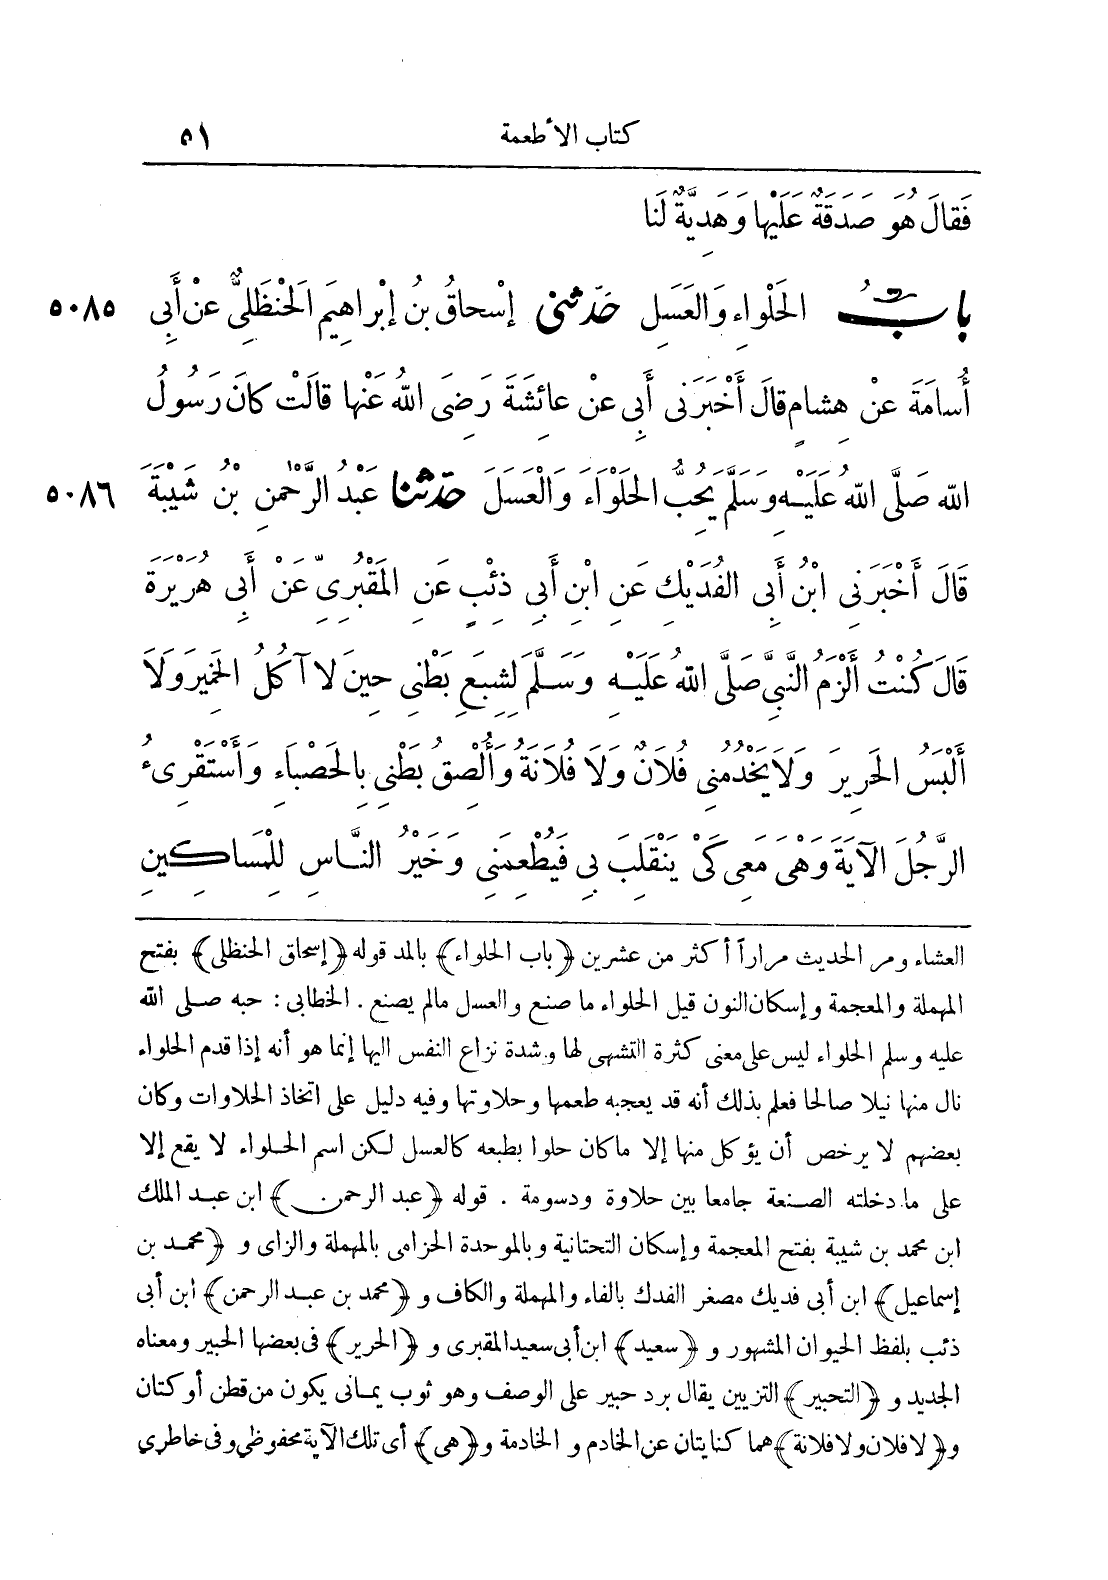 كتاب الأطعمة ٥١
فَقَالَ هُوَ صَدَقَةٌ عَلَيْهَا وَهَدِيَّةٌ لَنَا
بَابُ الحَلْوَاءِ وَالعَسَلِ حَدَّثَنِى إِسْحَاقُ بْنُ إِبْرَاهِيمَ الحَنْظَلِىُّ عَنْ أَبِى ٥٠٨٥
أُسَامَةَ عَنْ هِشَامٍ قَالَ أَخْبَرَنِى أَبِى عَنْ عَائِشَةَ رَضِىَ اللهُ عَنْهَا قَالَتْ كَانَ رَسُولُ
اللهِ صَلَّى اللهُ عَلَيْهِ وَسَلَّمَ يُحِبُّ الحَلْوَاءَ وَالْعَسَلَ حَدَّثَنَا عَبْدُ الرَّحْمٰنِ بْنُ شَيْبَةَ ٥٠٨٦
قَالَ أَخْبَرَنِى ابْنُ أَبِى الفُدَيْكِ عَنِ ابْنِ أَبِى ذِئْبٍ عَنِ المَقْبُرِىِّ عَنْ أَبِى هُرَيْرَةَ
قَالَ كُنْتُ أَلْزَمُ النَّبِىَّ صَلَّى اللهُ عَلَيْهِ وَسَلَّمَ لِشِبَعِ بَطْنِى حِينَ لَا آكُلُ الخَمِيرَ وَلَا
أَلْبَسُ الحَرِيرَ وَلَا يَخْدُمُنِى فُلَانٌ وَلَا فُلَانَةُ وَأُلْصِقُ بَطْنِى بِالحَصْبَاءِ وَأَسْتَقْرِىءُ
الرَّجُلَ الآيَةَ وَهْىَ مَعِى كَىْ يَنْقَلِبَ بِى فَيُطْعِمَنِى وَخَيْرُ النَّاسِ لِلْمَسَاكِينِ
العشاء ومر الحديث مراراً أكثر من عشرين ﴿باب الحلواء﴾ بالمد قوله ﴿إسحاق الحنظلى﴾ بفتح
المهملة والمعجمة وإسكان النون قيل الحلواء ما صنع والعسل مالم يصنع . الخطابى : حبه صلى الله
عليه وسلم الحلواء ليس على معنى كثرة التشهى لها وشدة نزاع النفس اليها إنما هو أنه إذا قدم الحلواء
نال منها نيلا صالحا فعلم بذلك أنه قد يعجبه طعمها وحلاوتها وفيه دليل على اتخاذ الحلاوات وكان
بعضهم لا يرخص أن يؤكل منها إلا ماكان حلوا بطبعه كالعسل لكن اسم الحلواء لا يقع إلا
على ما دخلته الصنعة جامعا بين حلاوة ودسومة . قوله ﴿عبد الرحمن﴾ ابن عبد الملك
ابن محمد بن شيبة بفتح المعجمة وإسكان التحتانية وبالموحدة الحزامى بالمهملة والزاى و ﴿محمد بن
إسماعيل﴾ ابن أبى فديك مصغر الفدك بالفاء والمهملة والكاف و ﴿محمد بن عبد الرحمن﴾ ابن أبى
ذئب بلفظ الحيوان المشهور و ﴿سعيد﴾ ابن أبى سعيد المقبرى و ﴿الحرير﴾ فى بعضها الحبير ومعناه
الجديد و ﴿التحبير﴾ التزيين يقال برد حبير على الوصف وهو ثوب يمانى يكون من قطن أو كتان
و﴿لا فلان ولا فلانة﴾ هما كنايتان عن الخادم و الخادمة و﴿هى﴾ أى تلك الآية محفوظى وفى خاطري